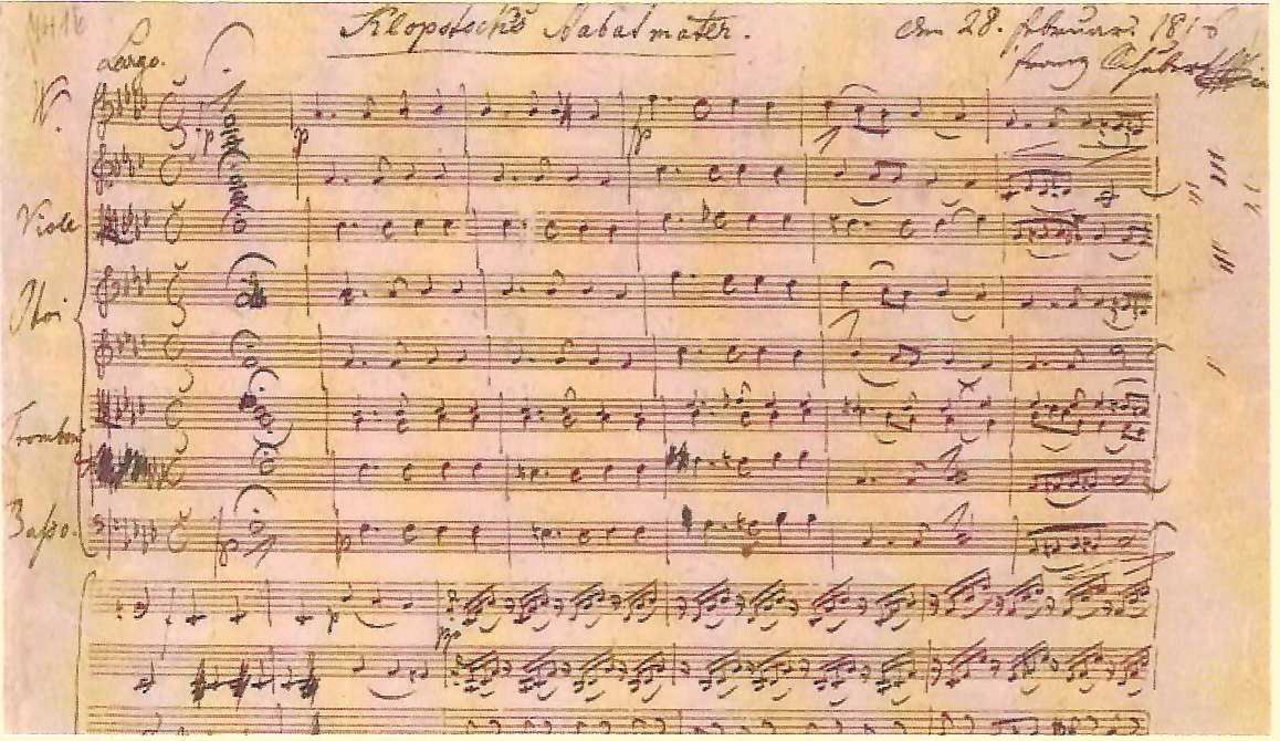 Klopstocks Stabat mater. den 28. februar 1816
Largo. franz Schubert
V.
p p p
Viole
Oboi
Tromboni
Basso.
p p
p
pp